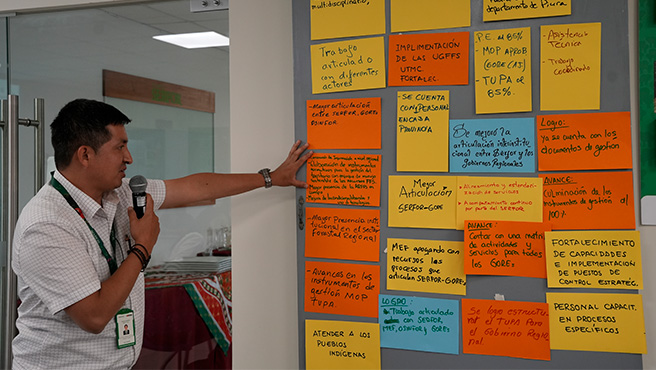 multidisciplinario.
departamento de Piura
Trabajo
articulado o
con diferentes
actores
IMPLEMENTACIÓN
DE LAS UGFFS
UTMC.
FORTALEC.
P.E. al 85%
- MOP APROB
(GORE CAJ)
- TUPA al
85%.
- Asistencia
Técnica
- Trabajo
coordinado
- Mayor articulación
entre SERFOR, GORES
OSINFOR
- SE CUENTA
CON PERSONAL
EN CADA
PROVINCIA
Se mejoró la
articulación interinstitu
cional entre Serfor y los
Gobiernos Regionales
Logro:
Ya se cuenta con los
documentos de gestión
AVANCE:
Culminación de los
instrumentos de gestión al
100%
Mayor Articulación
SERFOR-GORE
AVANCE:
Contar con una matriz
de actividades y
Servicios para todos
los GOREs
- Mayor Presencia
Forestal Regional
MEF apoyando con
recursos los
procesos que
articulan SERFOR-GORE
FORTALECIMIENTO DE
CAPACIDADES
E IMPLEMENTACIÓN
DE PUESTOS DE
CONTROL ESTRATEG.
- Avances en los
Instrumentos de
gestión MOP
TUPA
LOGRO:
Trabajo articulado
con SERFOR,
MEF, OSINFOR y
GORE
Se logró estructu
rar el TUPA para
el Gobierno
Regional
PERSONAL CAPACIT.
EN PROCESOS
ESPECÍFICOS
ATENDER A LOS
PUEBLOS
INDÍGENAS